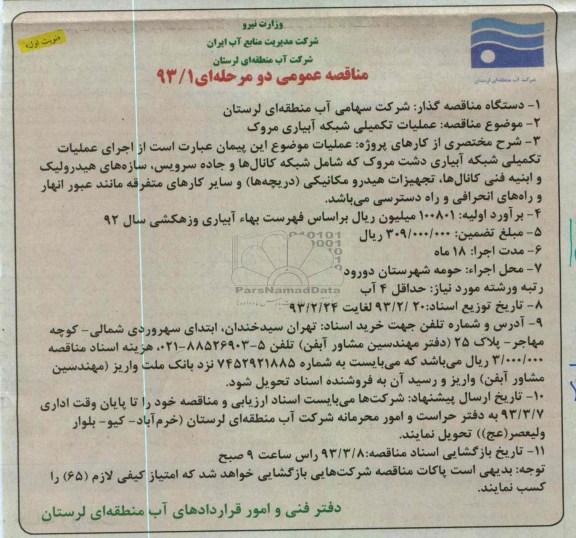 وزارت نیرو
شرکت مدیریت منابع آب ایران
شرکت آب منطقه‌ای لرستان
نوبت اول
مناقصه عمومی دو مرحله‌ای ۹۳/۱
شرکت آب منطقه‌ای لرستان
۱- دستگاه مناقصه گذار: شرکت سهامی آب منطقه‌ای لرستان
۲- موضوع مناقصه: عملیات تکمیلی شبکه آبیاری مروک
۳- شرح مختصری از کارهای پروژه: عملیات موضوع این پیمان عبارت است از اجرای عملیات
تکمیلی شبکه آبیاری دشت مروک که شامل شبکه کانال‌ها و جاده سرویس، سازه‌های هیدرولیک
و ابنیه فنی کانال‌ها، تجهیزات هیدرو مکانیکی (دریچه‌ها) و سایر کارهای متفرقه مانند عبور انهار
و راه‌های انحرافی و راه دسترسی می‌باشد.
۴- برآورد اولیه: ۱۰۰۸۰۱ میلیون ریال براساس فهرست بهاء آبیاری وزهکشی سال ۹۲
۵- مبلغ تضمین: ۳۰۹/۰۰۰/۰۰۰ ریال
۶- مدت اجرا: ۱۸ ماه
۷- محل اجراء: حومه شهرستان دورود
رتبه ورشته مورد نیاز: حداقل ۴ آب
۸- تاریخ توزیع اسناد: ۹۳/۲/۲۰ لغایت ۹۳/۲/۲۴
۹- آدرس و شماره تلفن جهت خرید اسناد: تهران سیدخندان، ابتدای سهروردی شمالی- کوچه
مهاجر- پلاک ۲۵ (دفتر مهندسین مشاور آبفن) تلفن ۵-۸۸۵۲۶۹۰۳-۰۲۱، هزینه اسناد مناقصه
۳/۰۰۰/۰۰۰ ریال می‌باشد که می‌بایست به شماره ۷۴۵۲۹۲۱۸۸۵ نزد بانک ملت واریز (مهندسین
مشاور آبفن) واریز و رسید آن به فروشنده اسناد تحویل شود.
۱۰- تاریخ ارسال پیشنهاد: شرکت‌ها می‌بایست اسناد ارزیابی و مناقصه خود را تا پایان وقت اداری
۹۳/۳/۷ به دفتر حراست و امور محرمانه شرکت آب منطقه‌ای لرستان (خرم‌آباد- کیو- بلوار
ولیعصر(عج)) تحویل نمایند.
۱۱- تاریخ بازگشایی اسناد مناقصه:۹۳/۳/۸ راس ساعت ۹ صبح
توجه: بدیهی است پاکات مناقصه شرکت‌هایی بازگشایی خواهد شد که امتیاز کیفی لازم (۶۵) را
کسب نمایند.
دفتر فنی و امور قراردادهای آب منطقه‌ای لرستان
ParsNamadData